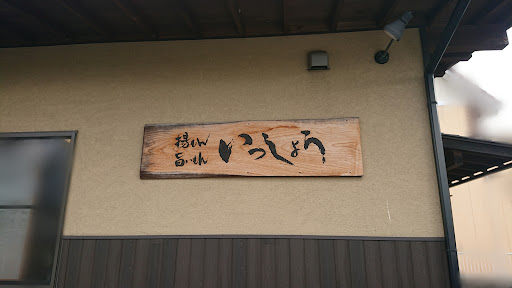 揚げもん
旨いもん
いっしょう